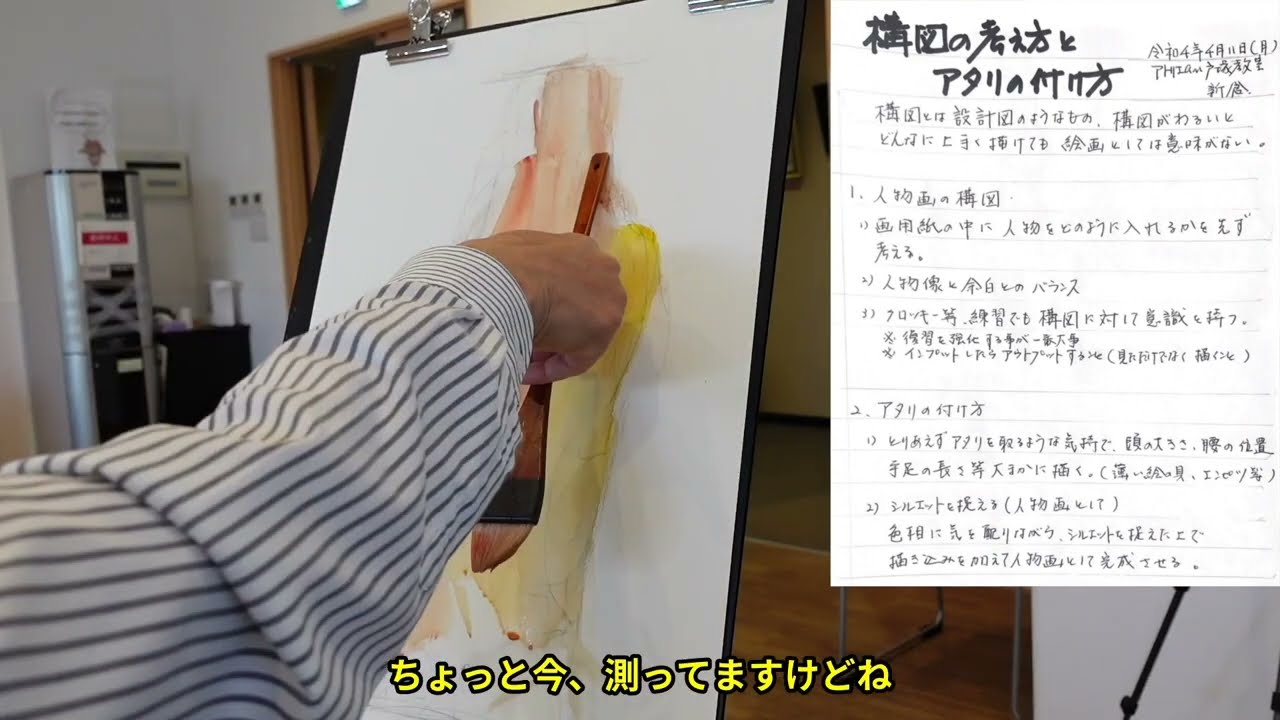 構図の考え方と
アタリの付け方
令和4年4月11日(月)
構図とは設計図のようなもの、構図がわるいと
どんなに上手く描けても絵画としては意味がない。
1. 人物画の構図
1) 画用紙の中に人物をどのように入れるかを先ず
考える。
2) 人物像と余白とのバランス
3) クロッキー等、練習でも構図に対して意識を持つ。
※ 復習を強化する事が一番大事
※ インプットしたらアウトプットすること(見ただけでなく描くこと)
2. アタリの付け方
1) とりあえずアタリを取るような気持で、頭の大きさ、腰の位置
手足の長さ等大まかに描く。(薄い絵の具、エンピツ等)
2) シルエットを捉える(人物画として)
色相に気を配りながら、シルエットを捉えた上で
描き込みを加えて人物画として完成させる。
ちょっと今、測ってますけどね